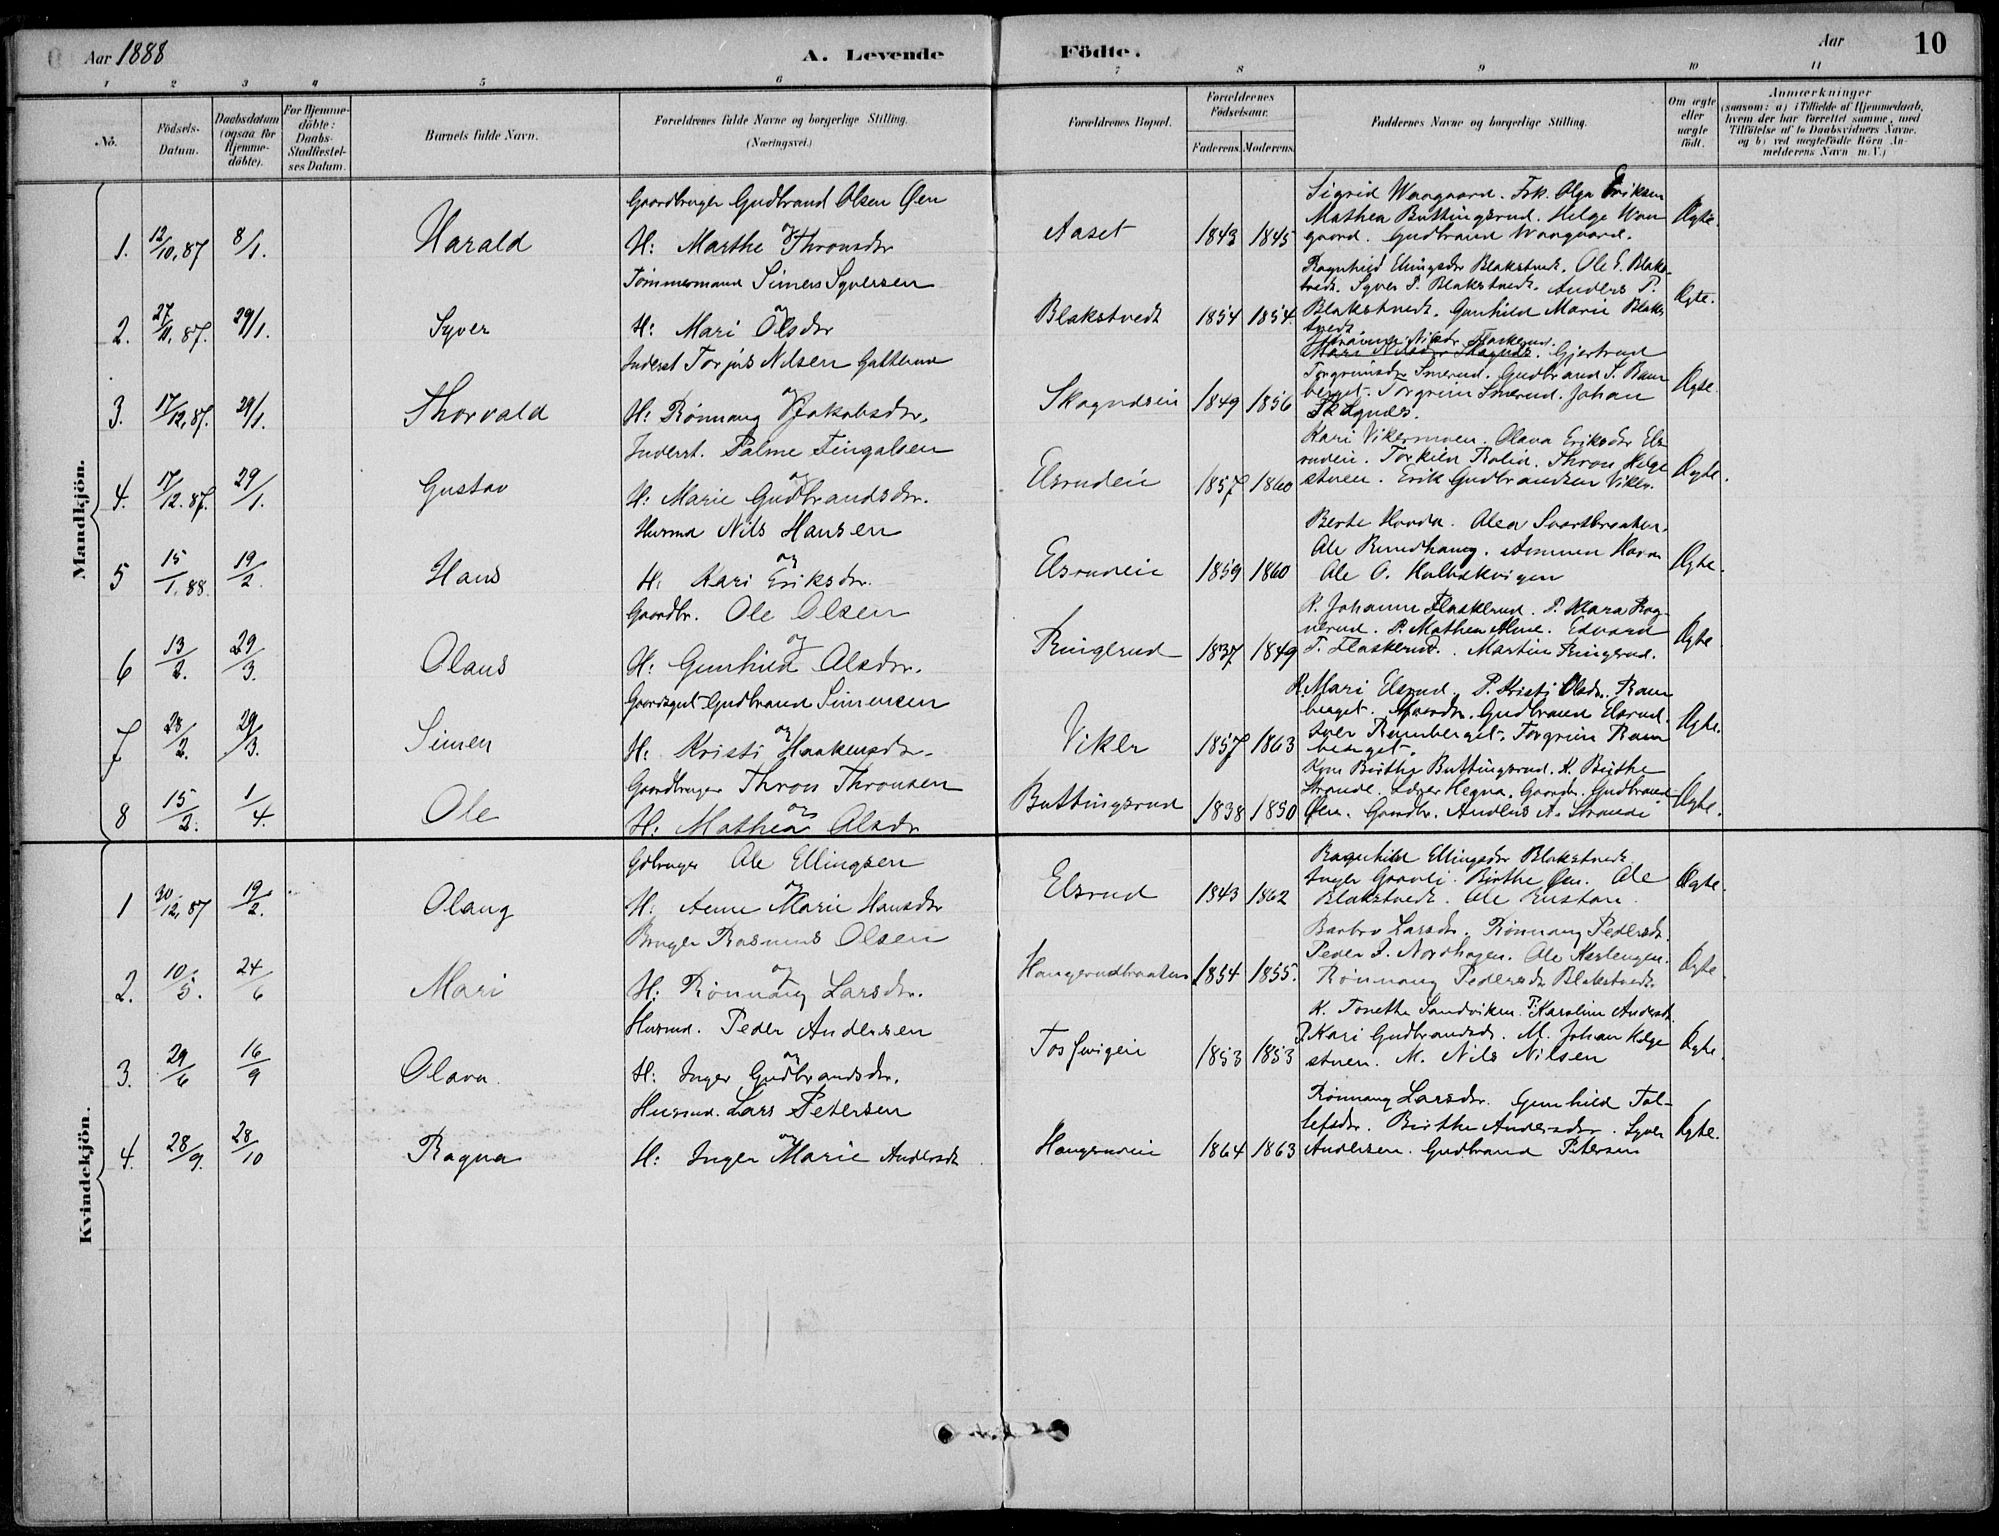 Aar 1888
A. Levende Födte.
Aar
10
1 2 3 4 5 6 7 8 9 10 11
No.
Födsels-Datum.
Daabsdatum (ogsaa for Hjemmedöbte).
For Hjemmedöbte: Daabs-Stadfæstelses Datum.
Barnets fulde Navn.
Forældrenes fulde Navne og borgerlige Stilling. (Næringsvei.)
Forældrenes Bopæl.
Forældrenes Födselsaar.
Faderens. Moderens.
Faddernes Navne og borgerlige Stilling.
Om ægte eller uægte födt.
Anmærkninger
(saasom: a) i Tilfælde af Hjemmedaab, hvem der har forrettet samme, med Tilföielse af to Daabsvidners Navne, og b) ved uægtefödte Börn Anmelderens Navn m. V.)
Mandkjön.
1. 12/10, 87 8/1. Harald
Gaardbruger Gudbrand Olsen Øen
og
H: Marthe Thronsdr
Aaset 1843 1845
Sigrid Waagaard. Frk. Olga Eriksen
Mathea Buttingsrud. Helge Waa
gaard. Gudbrand Waagaard.
Ægte.
2. 27/11, 87. 29/1. Syver
Tømmermand Simen Syversen
og
H: Mari Olsdr
Blakstvedt 1854 1854.
Ragnhild Ellingsdr Blakstvedt. Ole E. Blaks-
tvedt. Syver P. Blakstvedt. Anders P.
Blakstvedt. Gunhild Marie Blaks
tvedt.
Ægte.
3. 17/12, 87. 29/1. Thorvald
Inderst Torjus Nilsen
og
H: Rønnaug Jakobsdr.
1849 1856
Gjertrud
Torgrimsdr Smerud. Gudbrand S. Ram
berget. Torgrim Smerud. Johan
Skagnæs.
Ægte.
4. 17/12. 87. 29/1. Gustav
Inderst. Palme Fingalsen
og
H: Marie Gudbrandsdr.
Elsrudeie 1857 1860
Kari Vikermoen. Olava Eriksdr Els
rudeie. Torkild Rolid. Thron Helge
stuen. Erik Gudbrandsen Viker.
Ægte.
5 15/1, 88. 19/2. Hans
Husmd Nils Hansen
og
H: Kari Eriksdr.
Elsrudeie 1859 1860
Ægte.
6 13/2. 29/3. Olaus
Gaardbr. Ole Olsen
og
H: Gunhild Olsdr.
Ringerud 1837 1849
K. Johanne Flaskerud. P. Klara Rog-
nerud. P. Mathea Alme. Edvard
T. Flaskerud. Martin Ringerud.
Ægte
7 28/2. 29/3. Simen
Gudbrand Simensen
og
H: Kristi Haakensdr.
Viker 1857 1863
K. Mari Elsrud. P. Kristi Olsdr. Ram
berget. Gaardbr. Gudbrand Elsrud.
Iver Ramberget. Torgrim Ram
berget.
Ægte.
8 15/2. 1/4. Ole
Gaardbruger Thron Thronsen
og
H: Mathea Olsdr
Buttingsrud 1838 1850
Kone Birthe Buttingsrud. K. Birthe
Strande. Lærer Hegna. Gaardbr. Gudbrand
Øen. Gaardbr. Andreas A. Strande
Ægte.
Kvindekjön.
1 30/12, 87 19/2. Olaug
Gdbruger Ole Ellingsen
og
H: Anne Marie Hansdr
Elsrud 1843 1862
Ragnhild Ellingsdr Blakstvedt.
Inger Gravli. Birthe Øen. Ole
Blakstvedt. Ole Enstøn.
Ægte.
2. 10/5. 24/6 Mari
Bruger Rasmus Olsen
og
H: Rønnaug Larsdr.
Haugerudbraaten 1854 1855.
Barbro Larsdr. Rønnaug Pedersdr.
Peder J. Nordhagen. Ole
Rønnaug Pedersdr Blakstvedt.
Ægte.
3. 29/6 16/9 Olava.
Husmd. Peder Andersen
og
H: Inger Gudbrandsdr.
1853 1853
K. Tonethe Sandviken. P: Karoline Andersdr.
P. Kari Gudbrandsdr. M. Johan Helge
stuen. M. Nils Nilsen
Ægte.
4. 28/9. 28/10 Ragna
Husmd. Lars Petersen
og
H: Inger Marie Andersdr
Haugerudeie 1864 1863
Rønnaug Larsdr. Gunhild Tol-
lefsdr. Birthe Andersdr. Syver
Andersen. Gudbrand Petersen
Ægte.